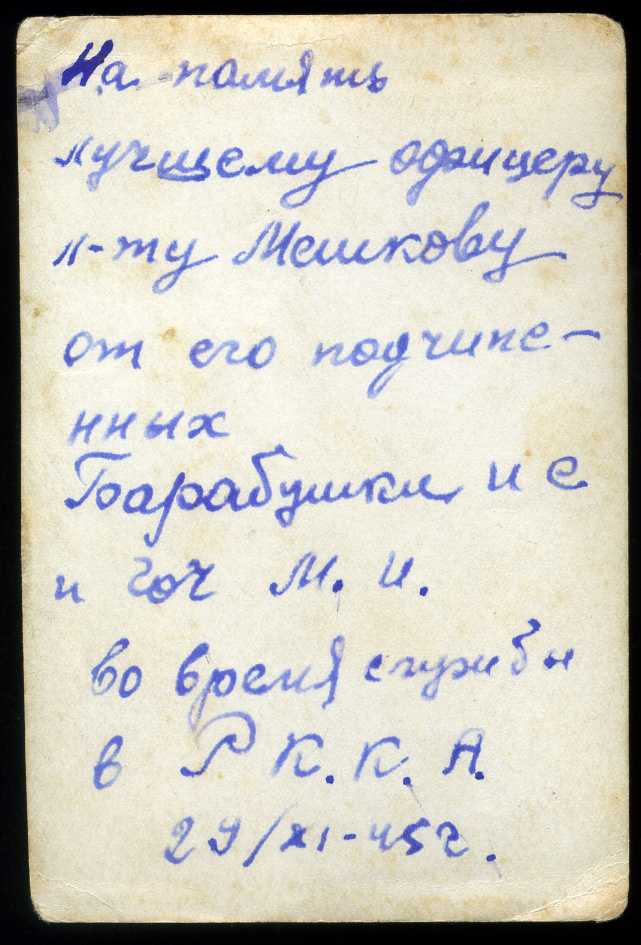 На память
лучшему офицеру
л-ту Мешкову
от его подчине-
нных
Барабушки И С
и Гоч М. И.
во время службы
в Р К. К. А.
29/XI-45г.